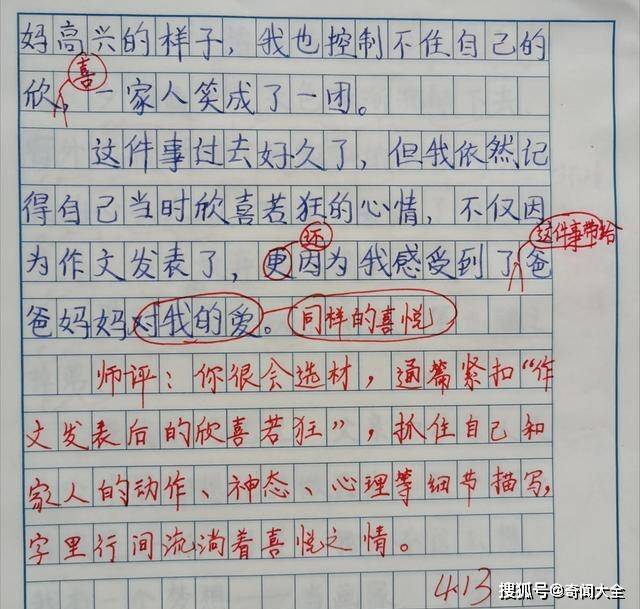 妈高兴的样子，我也控制不住自己的
喜
欣，一家人笑成了一团。
这件事过去好久了，但我依然记
得自己当时欣喜若狂的心情，不仅因
还
这件事带给
为作文发表了，更因为我感受到了爸
爸妈妈对我的爱。同样的喜悦
师评：你很会选材，通篇紧扣“作
文发表后的欣喜若狂”，抓住自己和
家人的动作、神态、心理等细节描写，
字里行间流淌着喜悦之情。
4.13
搜狐号@奇闻大全